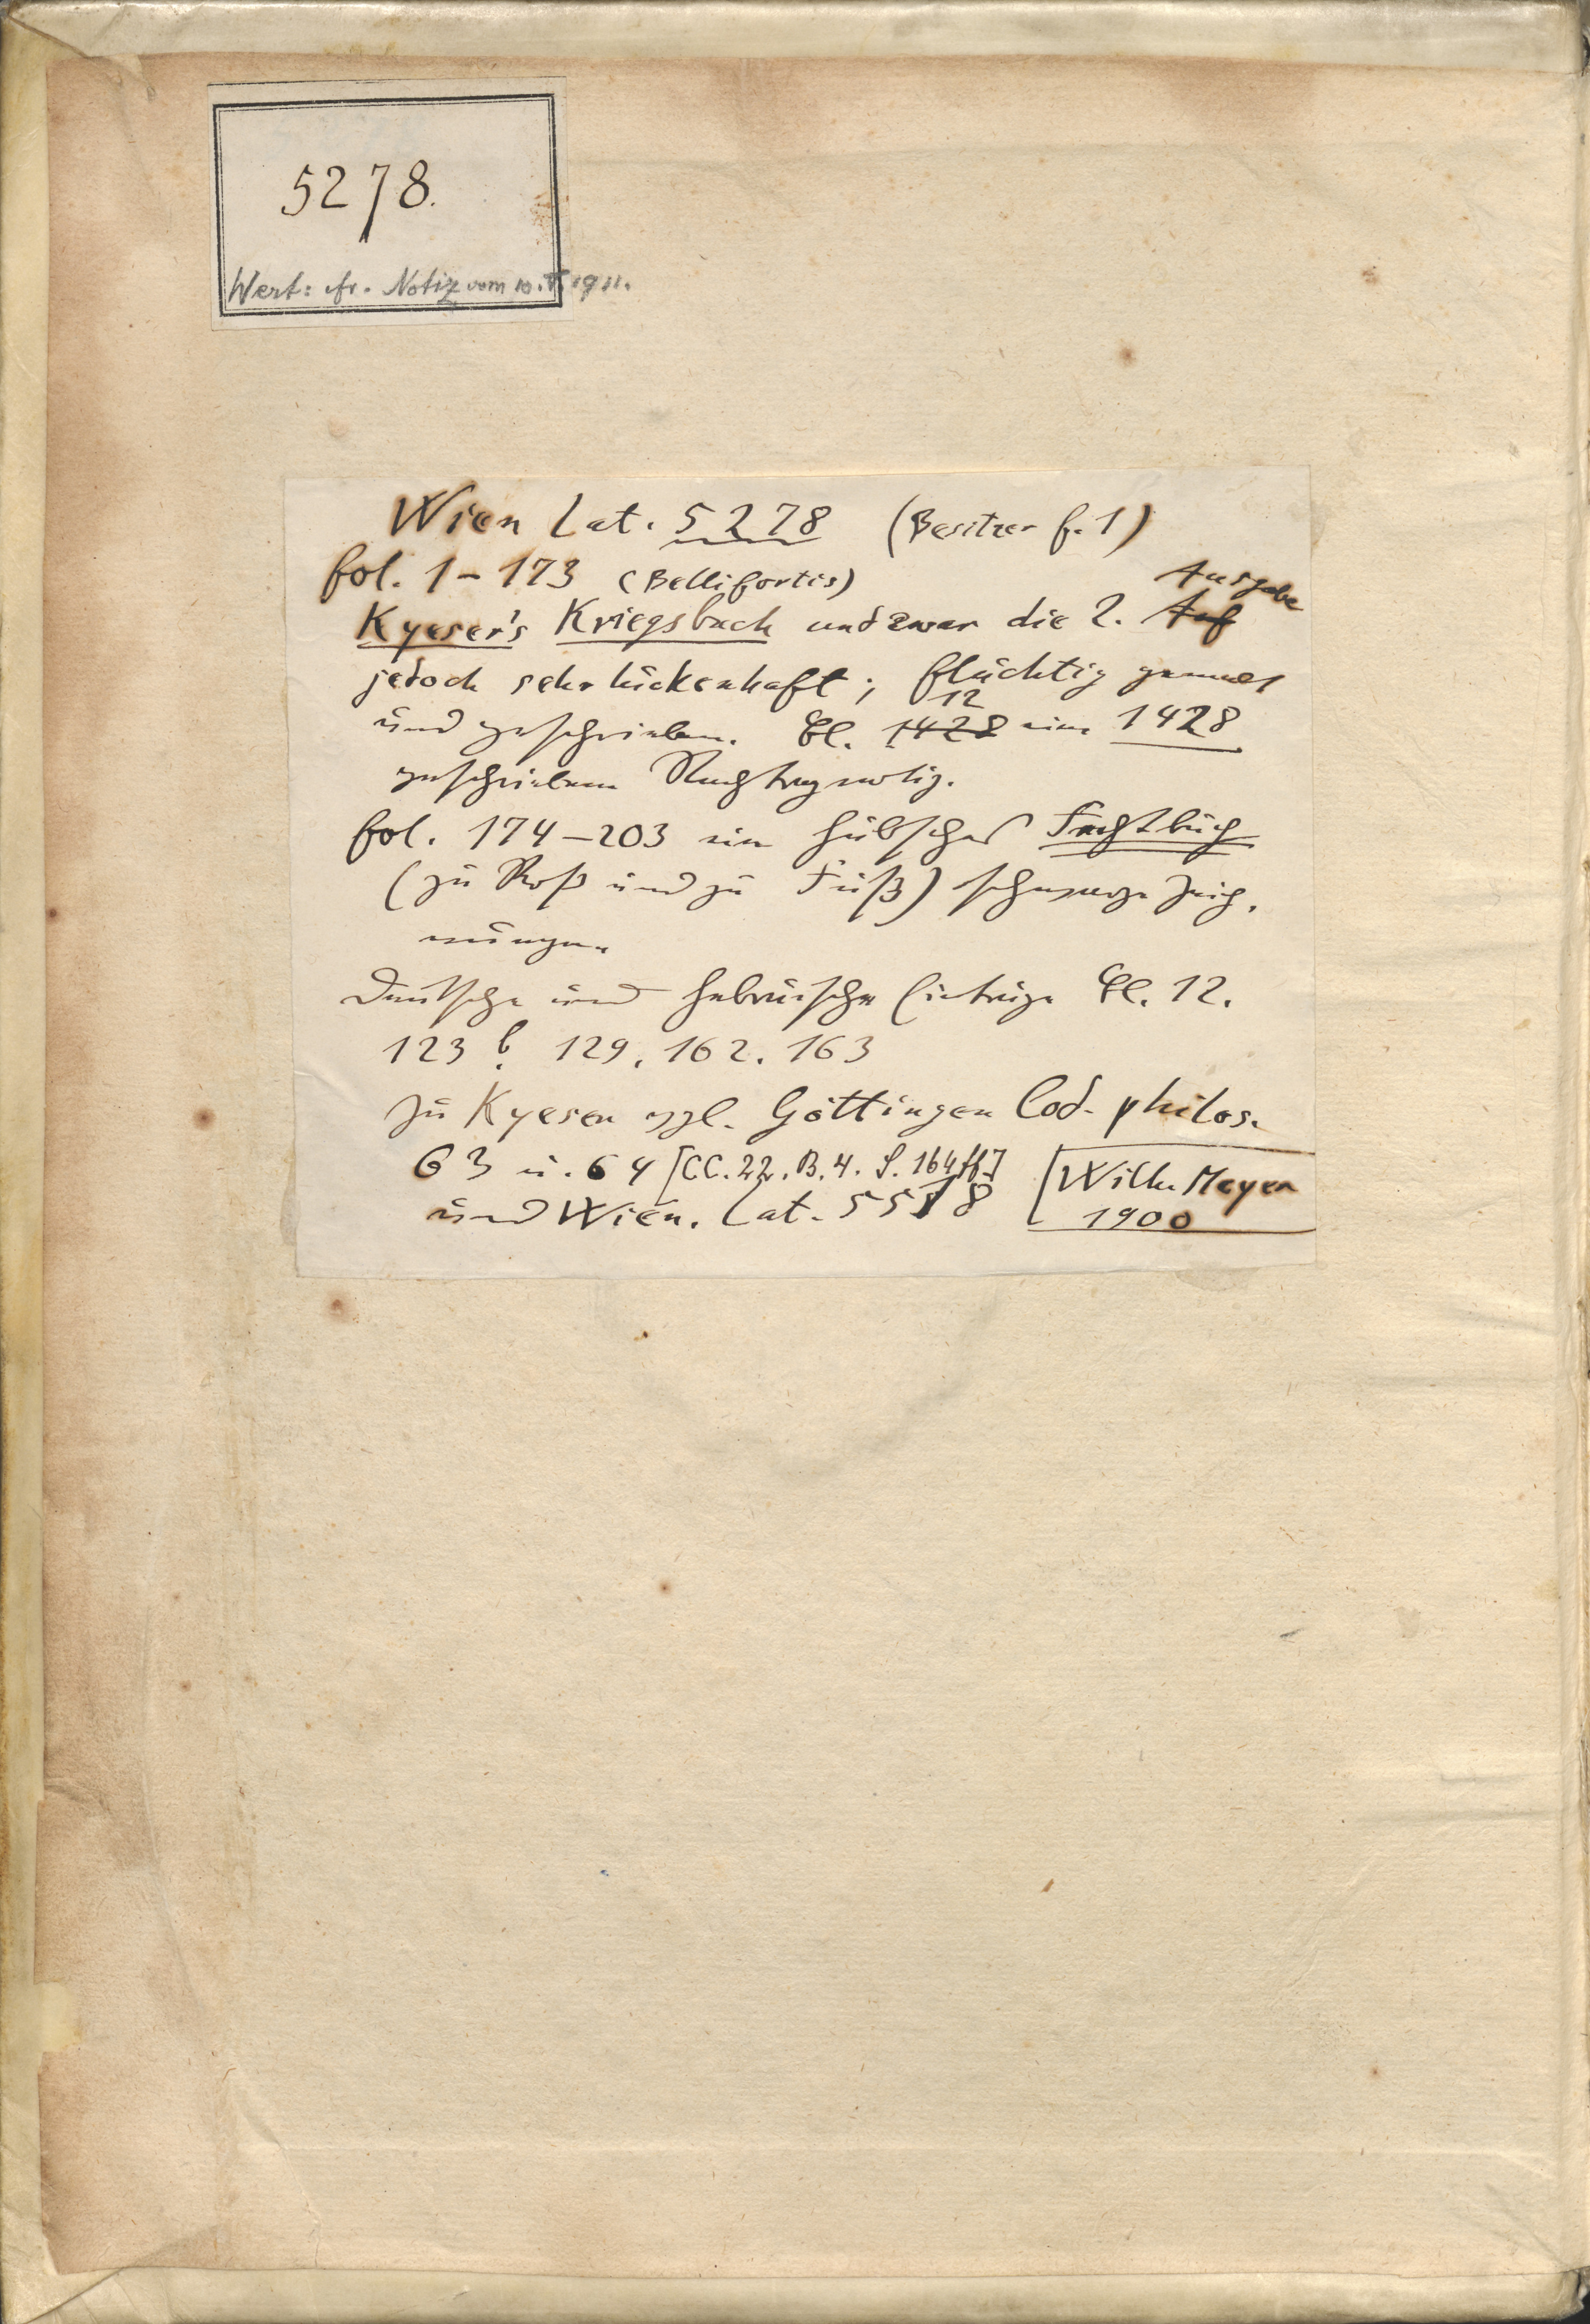 5278.
Wert: cfr. Notiz vom 10. V. 1911.
Wien Lat. 5278 (Besitzer f. 1)
fol. 1-173 (Bellifortis) Ausgabe
Kyeser's Kriegsbuch und zwar die 2. Auf
jedoch sehr lückenhaft; flüchtig gemalt
und geschrieben. Bl. 1428 12 eine 1428
geschriebene Nachtragnotiz.
fol. 174-203 ein hübsches Fechtbuch
(zu Roß und zu Fuß) schwarze Zeich-
nungen.
Deutsche und hebräische Einträge Bl. 12.
123 b. 129. 162. 163
Zu Kyeser vgl. Göttingen Cod. philos.
63 u. 64 [CC. 22. B. 4. S. 164 ff]
und Wien. Lat. 5518
[Wilh. Meyer
1900